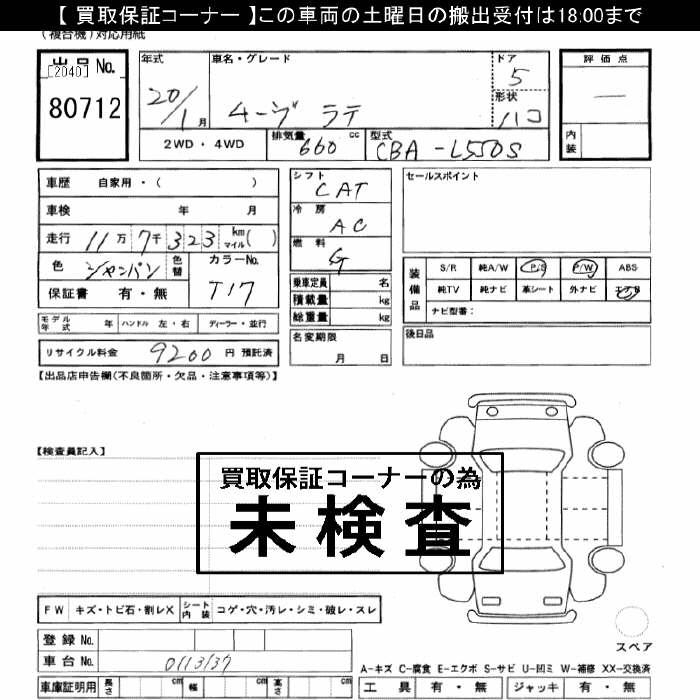 【 買取保証コーナー 】この車両の土曜日の搬出受付は18:00まで
(複合機)対応用紙
出品No.
[2040]
80712
年式
20/1月
車名・グレード
ムーヴ ラテ
ドア
5
形状
ハコ
評価点
—
内装
2WD・4WD
排気量 660 cc
型式 CBA-L550S
車歴 自家用・( )
車検 年 月
走行 11万7千323 km マイル( )
色 シャンパン 色替
カラーNo. T17
保証書 有・無
シフト CAT
冷房 AC
燃料 G
乗車定員 名
積載量 kg
総重量 kg
名変期限
月 日
セールスポイント
装備品
S/R 純A/W P/S P/W ABS
純TV 純ナビ 革シート 外ナビ エアB
ナビ型番:
後日品
モデル年式 年 ハンドル 左・右 ディーラー・並行
リサイクル料金 9200 円 預託済
【出品店申告欄(不良箇所・欠品・注意事項等)】
【検査員記入】
買取保証コーナーの為
未検査
FW キズ・トビ石・割レX シート内装 コゲ・穴・汚レ・シミ・破レ・スレ
登録No.
車台No. 0113137
車庫証明用 長さ cm 幅 cm 高さ cm
スペア
A-キズ C-腐食 E-エクボ S-サビ U-凹ミ W-補修 XX-交換済
工具 有・無 ジャッキ 有・無